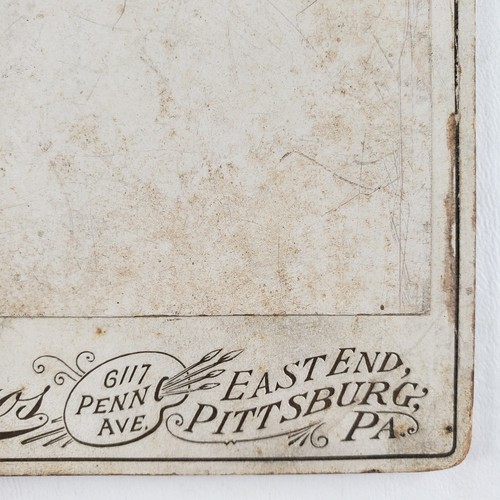 6117
PENN
AVE.
EAST END,
PITTSBURG,
PA.